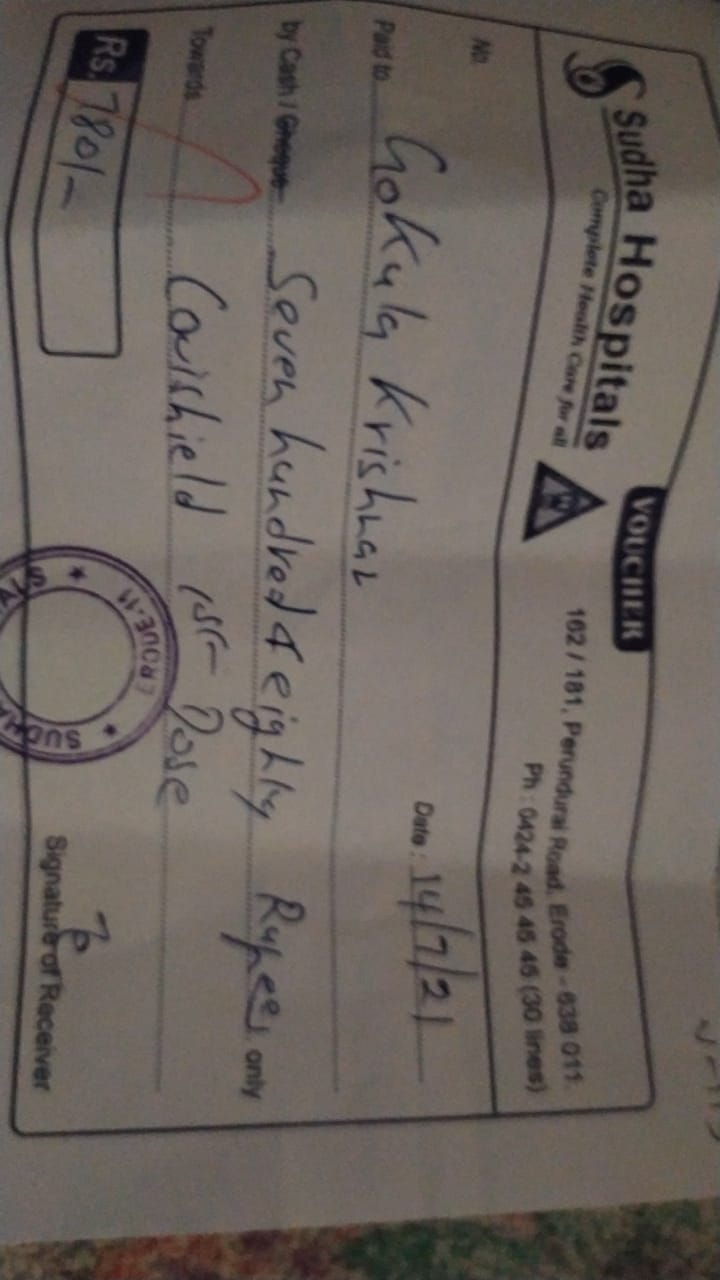 VOUCHER
Sudha Hospitals
Complete Health Care for all
162 / 181, Perundurai Road, Erode - 638 011.
Ph : 0424-2 45 45 45 (30 lines)
No.
Date : 14/7/21
Paid to Gokula Krishnan
by Cash / Cheque Seven hundred & eighty Rupees only
Towards Covishield 1st Dose
Rs. 780/-
SUDHA
ERODE-11
Signature of Receiver